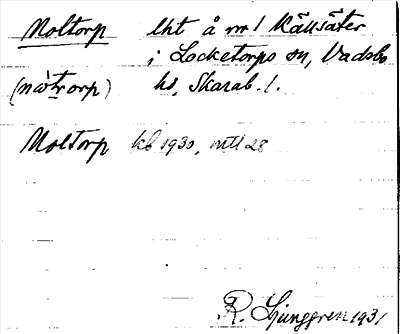 Moltorp lht å nr 1 Källsäter
i Locketorps sn, Vadsbo
(nó̀ṭrorp) hd, Skarab. l.
Moltorp kb 1930, mtl 28
R. Ljunggren 1931